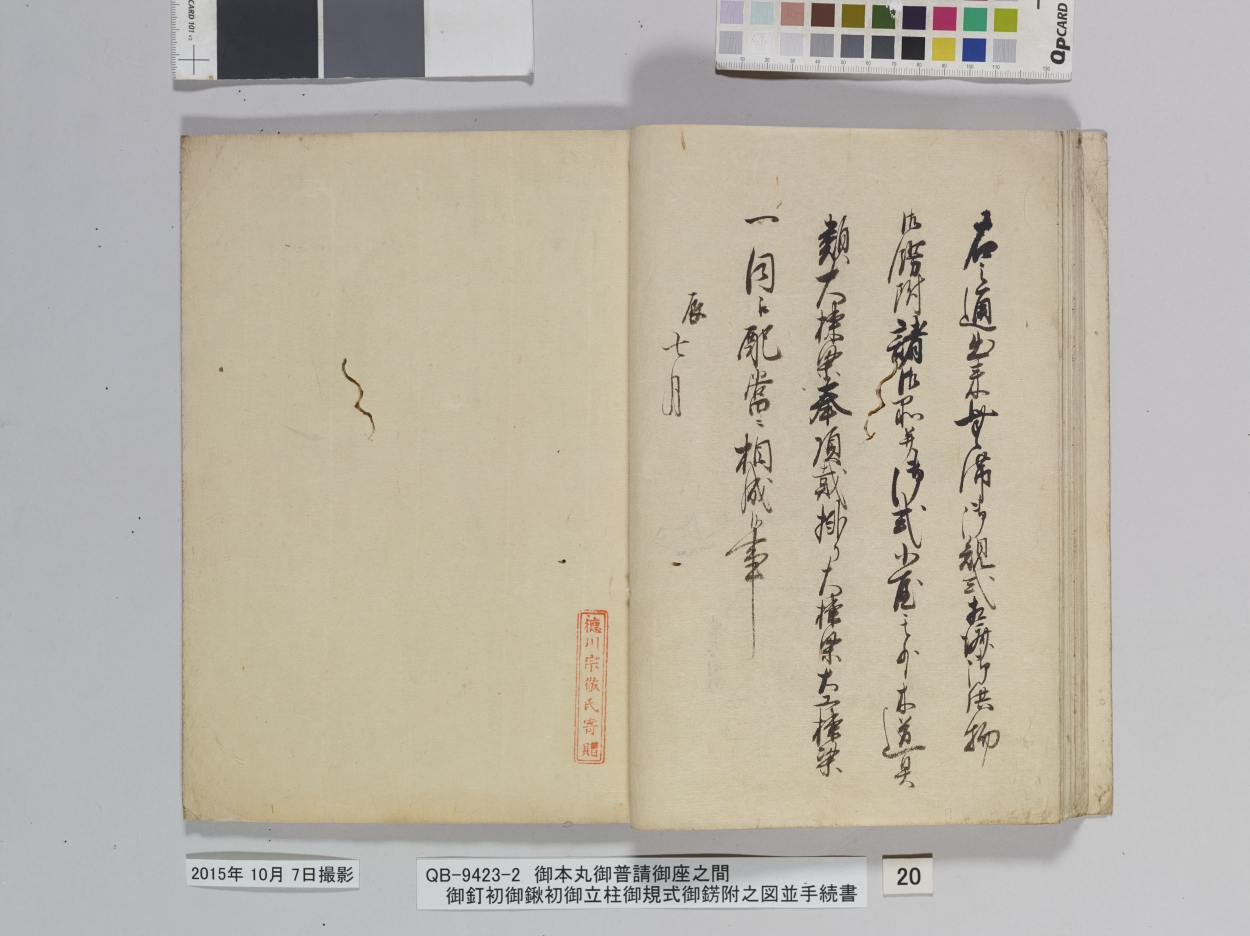 右之通出来無滞御規式相済御供物
御餝附諸御品并御式小屋其外木道具
類大棟梁奉頂戴掛り大棟梁大工棟梁
一同ニ配当ニ相成候事
辰七月
徳川宗敬氏寄贈
2015年 10月 7日撮影
QB-9423-2 御本丸御普請御座之間
御釘初御鍬初御立柱御規式御錺附之図並手続書
20
CARD 101
QPCARD